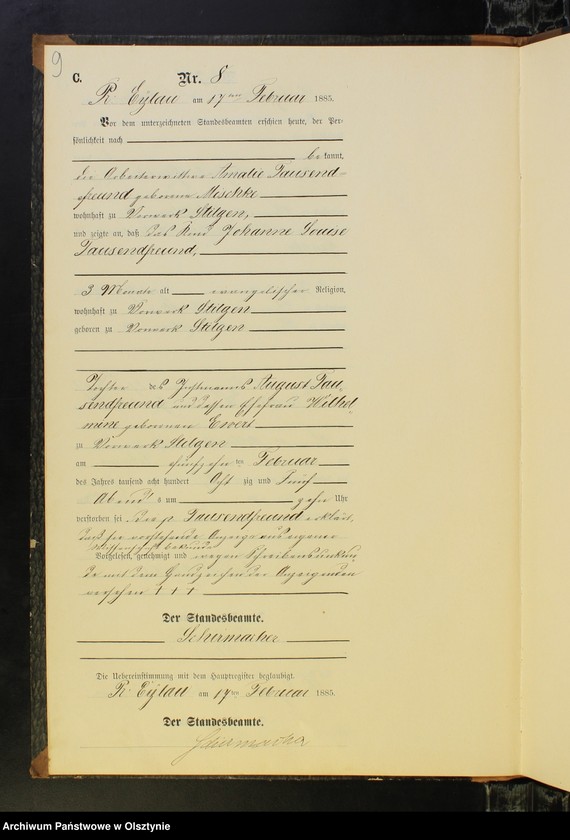 9
C.
Nr. 8
Pr. Eylau am 17ten Februar 1885.
Vor dem unterzeichneten Standesbeamten erschien heute, der Per-
sönlichkeit nach
bekannt,
die Arbeiterwittwe Amalie Tausend-
freund geborene Meschke
wohnhaft zu Vorwerk Stilgen,
und zeigte an, daß das Kind Johanne Louise
Tausendfreund,
3 Monate alt evangelischer Religion,
wohnhaft zu Vorwerk Stilgen
geboren zu Vorwerk Stilgen
Tochter des August Tau-
sendfreund und dessen Ehefrau Wilhel-
mine geborenen Ewert
zu Vorwerk Stilgen
am fünfzehnten Februar
des Jahres tausend acht hundert Achtzig und Fünf
Abends um zehn Uhr
verstorben sei, die p. Tausendfreund erklärt,
daß sie vorstehende Anzeige aus eigener
Wissenschaft bekunde
Vorgelesen, genehmigt und wegen Schreibensunkun-
de mit dem Handzeichen der Anzeigenden
versehen † † †
Der Standesbeamte.
Schirmacher
Die Uebereinstimmung mit dem Hauptregister beglaubigt.
Pr. Eylau am 17ten Februar 1885.
Der Standesbeamte.
Schirmacher
Archiwum Państwowe w Olsztynie